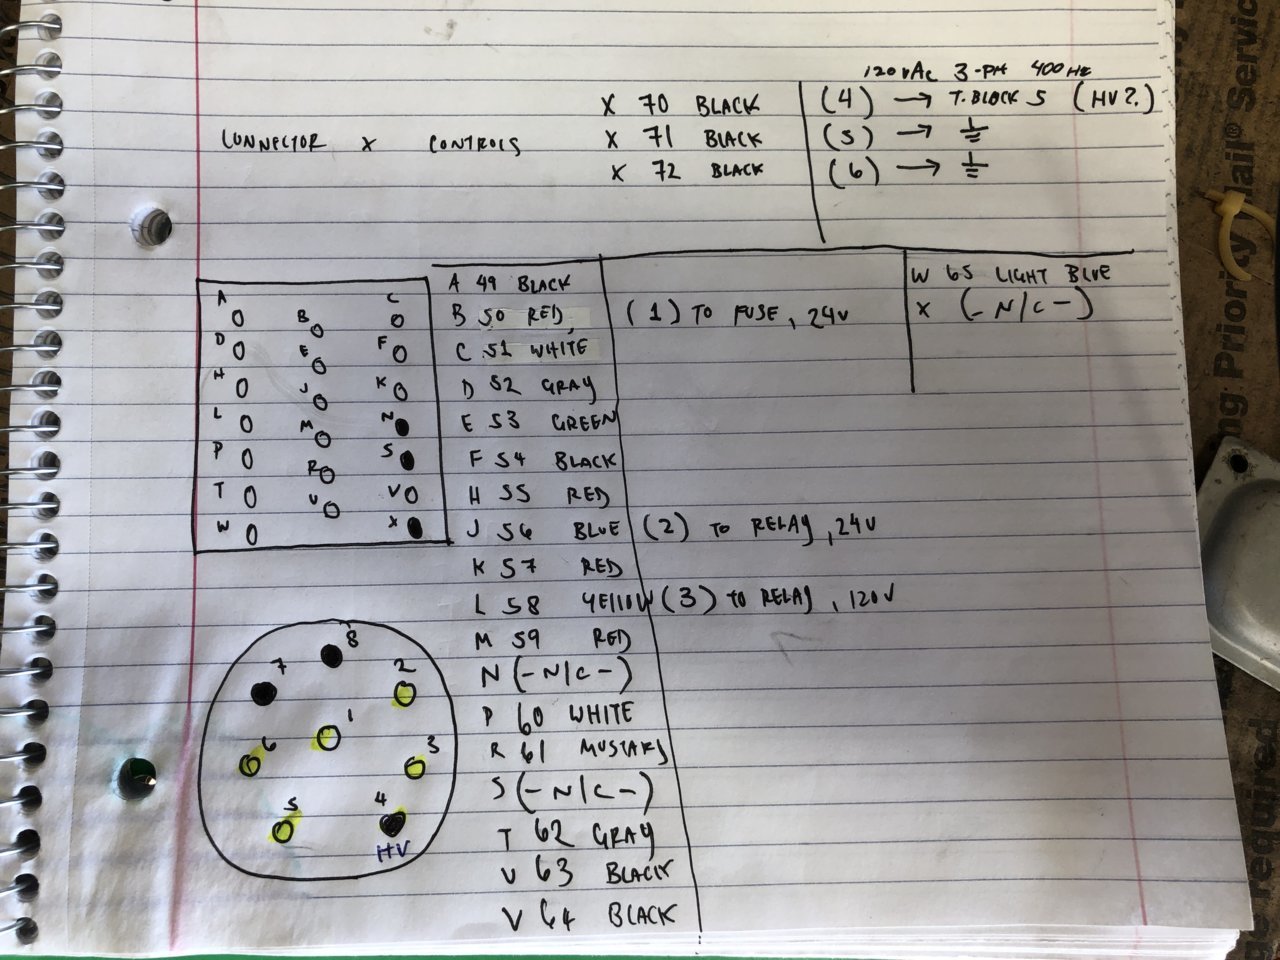 120VAC 3-PH 400HZ
X 70 BLACK (4) → T.BLOCK 5 (HV?)
CONNECTOR X CONTROLS
X 71 BLACK (5) →
X 72 BLACK (6) →
A 49 BLACK
B 50 RED, (1) TO FUSE, 24V
C 51 WHITE
D 52 GRAY
E 53 GREEN
F 54 BLACK
H 55 RED
J 56 BLUE (2) TO RELAY, 24V
K 57 RED
L 58 YELLOW (3) TO RELAY, 120V
M 59 RED
N (-N/C-)
P 60 WHITE
R 61 MUSTARD
S (-N/C-)
T 62 GRAY
U 63 BLACK
V 64 BLACK
W 65 LIGHT BLUE
X (-N/C-)
A B C
D E F
H J K
L M N
P R S
T U V
W X
8
7 2
1
6 3
5 4
HV
Priority Mail® Service
required